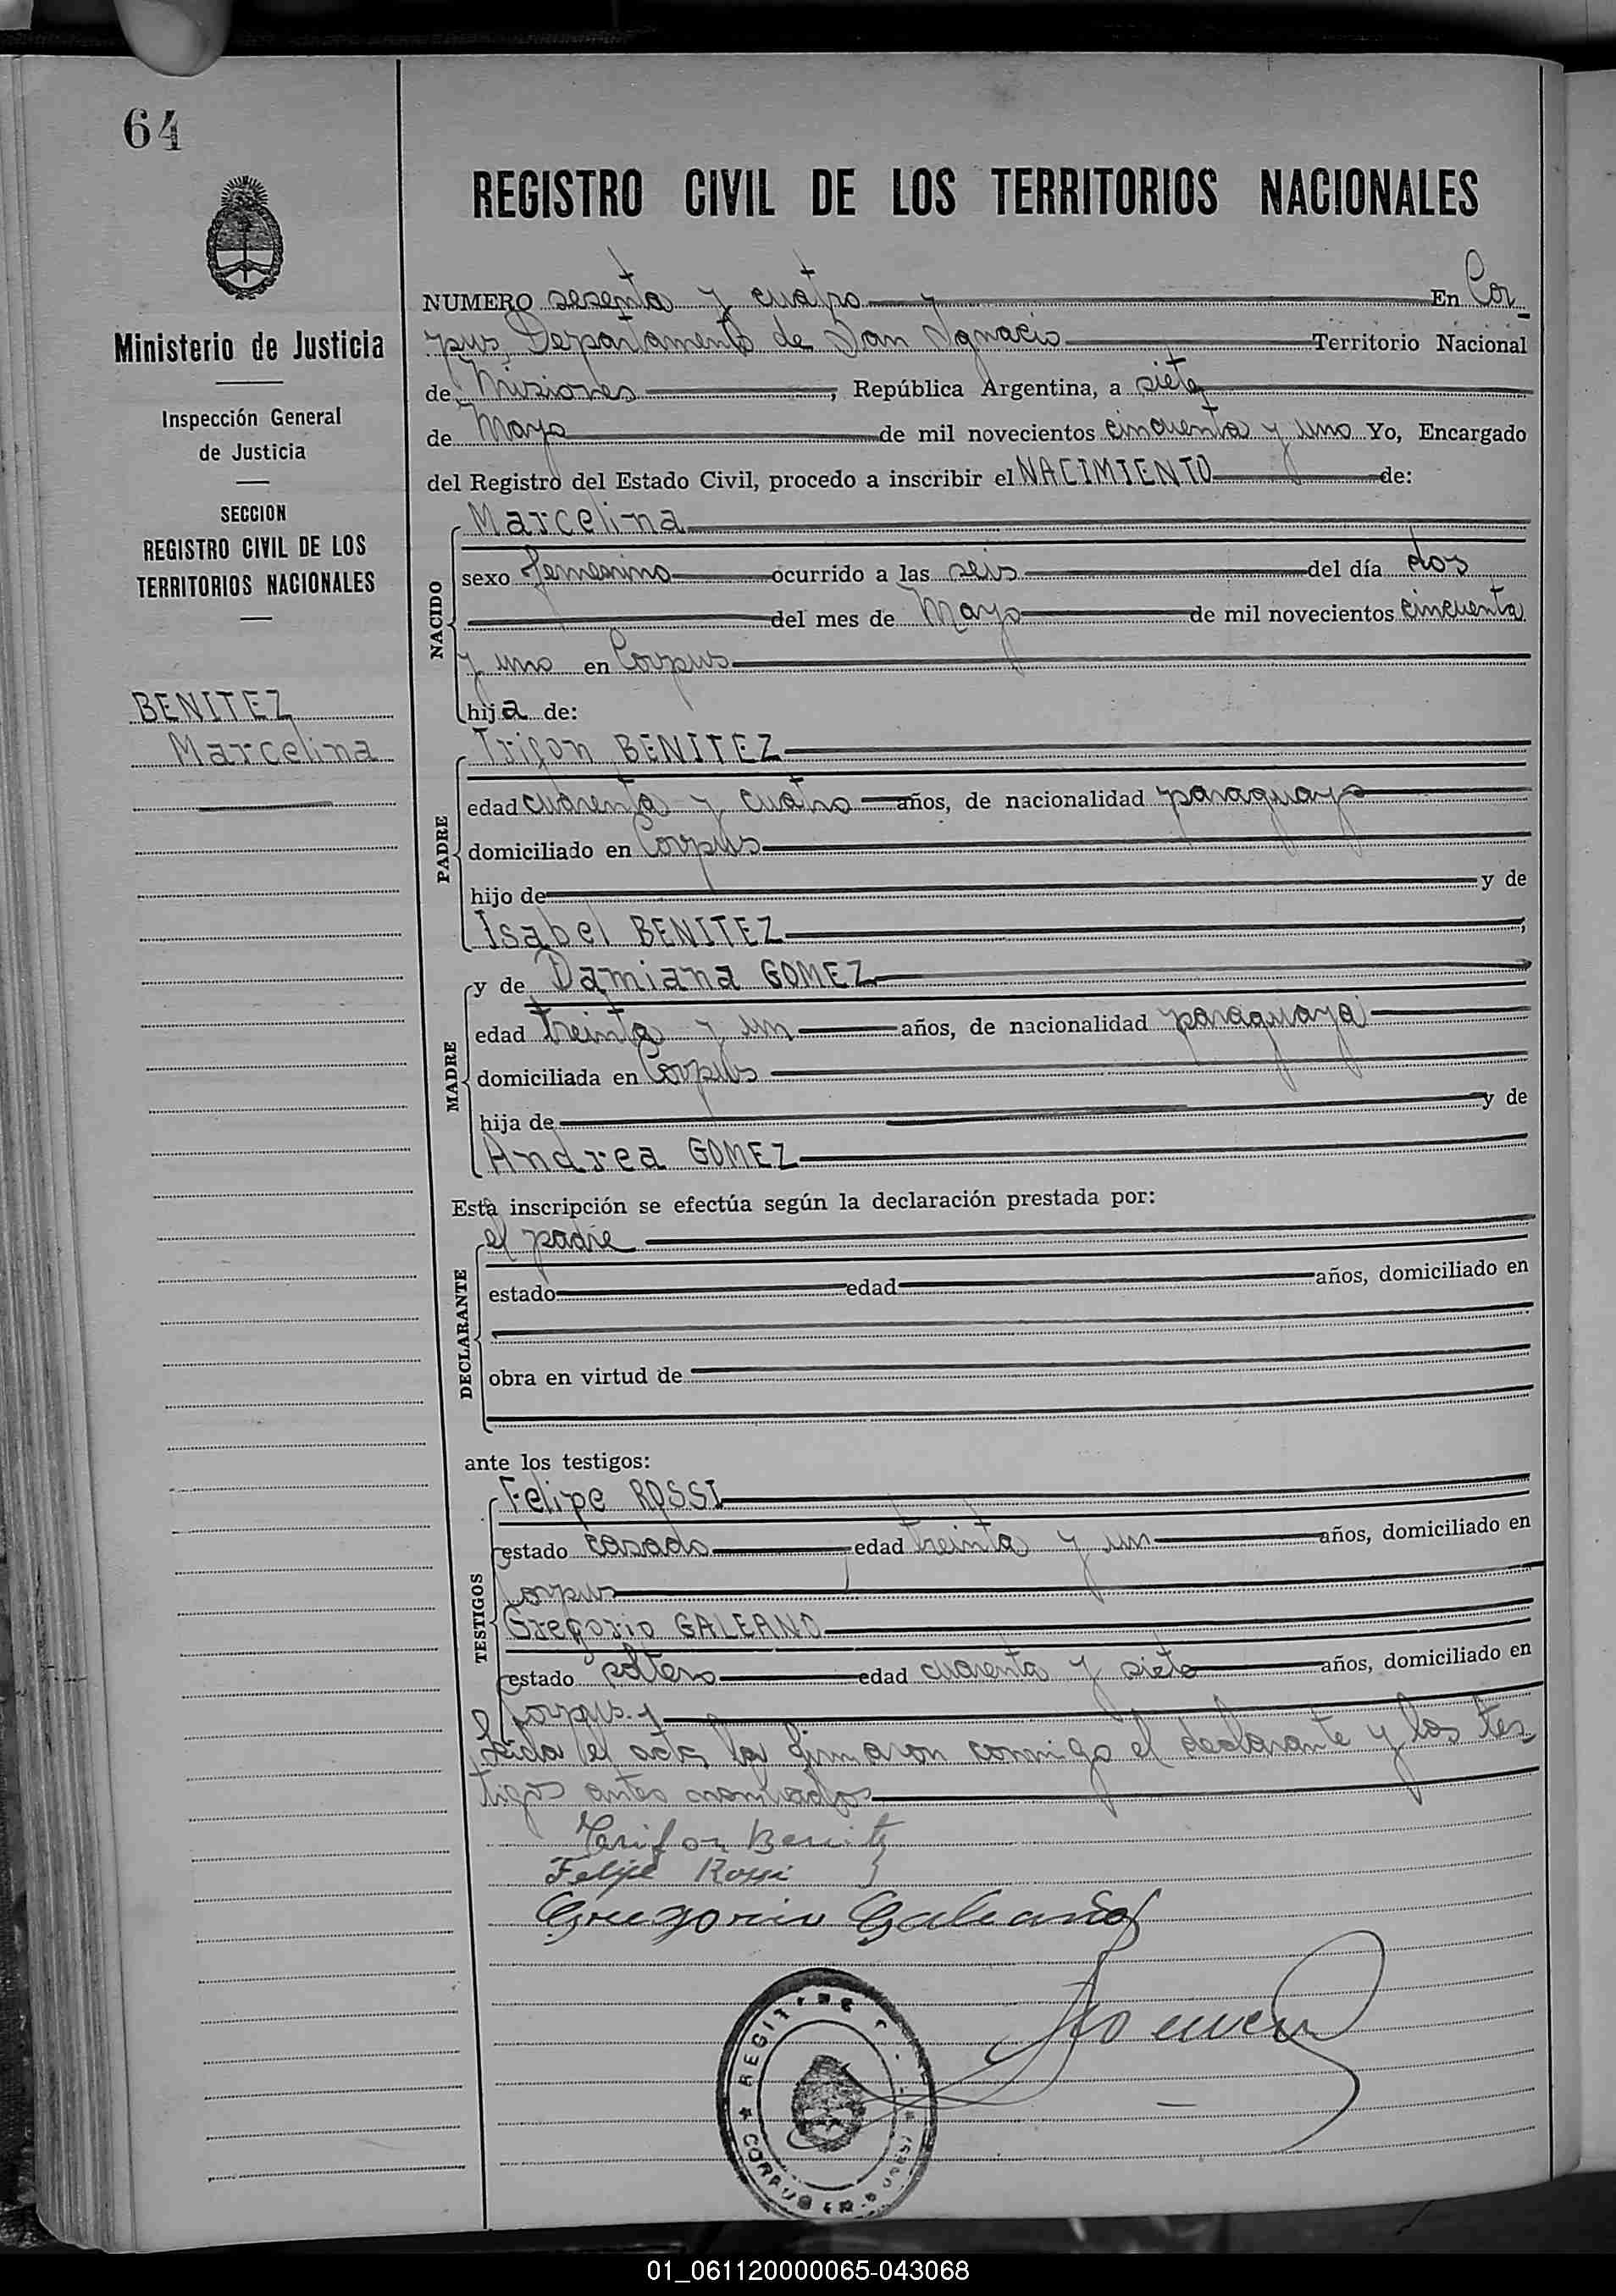 64
REGISTRO CIVIL DE LOS TERRITORIOS NACIONALES
NUMERO sesenta y cuatro En Cor
pus, Departamento de San Ignacio Territorio Nacional
Ministerio de Justicia
de Misiones, República Argentina, a siete
Inspección General
de Justicia
de Mayo de mil novecientos cincuenta y uno Yo, Encargado
del Registro del Estado Civil, procedo a inscribir el NACIMIENTO de:
SECCION
REGISTRO CIVIL DE LOS
TERRITORIOS NACIONALES
NACIDO
Marcelina
sexo femenino ocurrido a las seis del día dos
del mes de Mayo de mil novecientos cincuenta
y uno en Corpus
hija de:
BENITEZ
Marcelina
PADRE
Trifon BENITEZ
edad cuarenta y cuatro años, de nacionalidad paraguayo
domiciliado en Corpus
hijo de y de
Isabel BENITEZ
MADRE
y de Damiana GOMEZ
edad treinta y un años, de nacionalidad paraguaya
domiciliada en Corpus
hija de y de
Andrea GOMEZ
Esta inscripción se efectúa según la declaración prestada por:
DECLARANTE
el padre
estado edad años, domiciliado en
obra en virtud de
ante los testigos:
TESTIGOS
Felipe ROSSI
estado casado edad treinta y un años, domiciliado en
Corpus
Gregorio GALEANO
estado soltero edad cuarenta y siete años, domiciliado en
Corpus. y
Leida el acta, la firmaron conmigo el declarante y los tes
tigos antes nombrados
Tarifon Benitz
Felipe Rossi
Gregorio Galeano
CORPUS
01_061120000065-043068